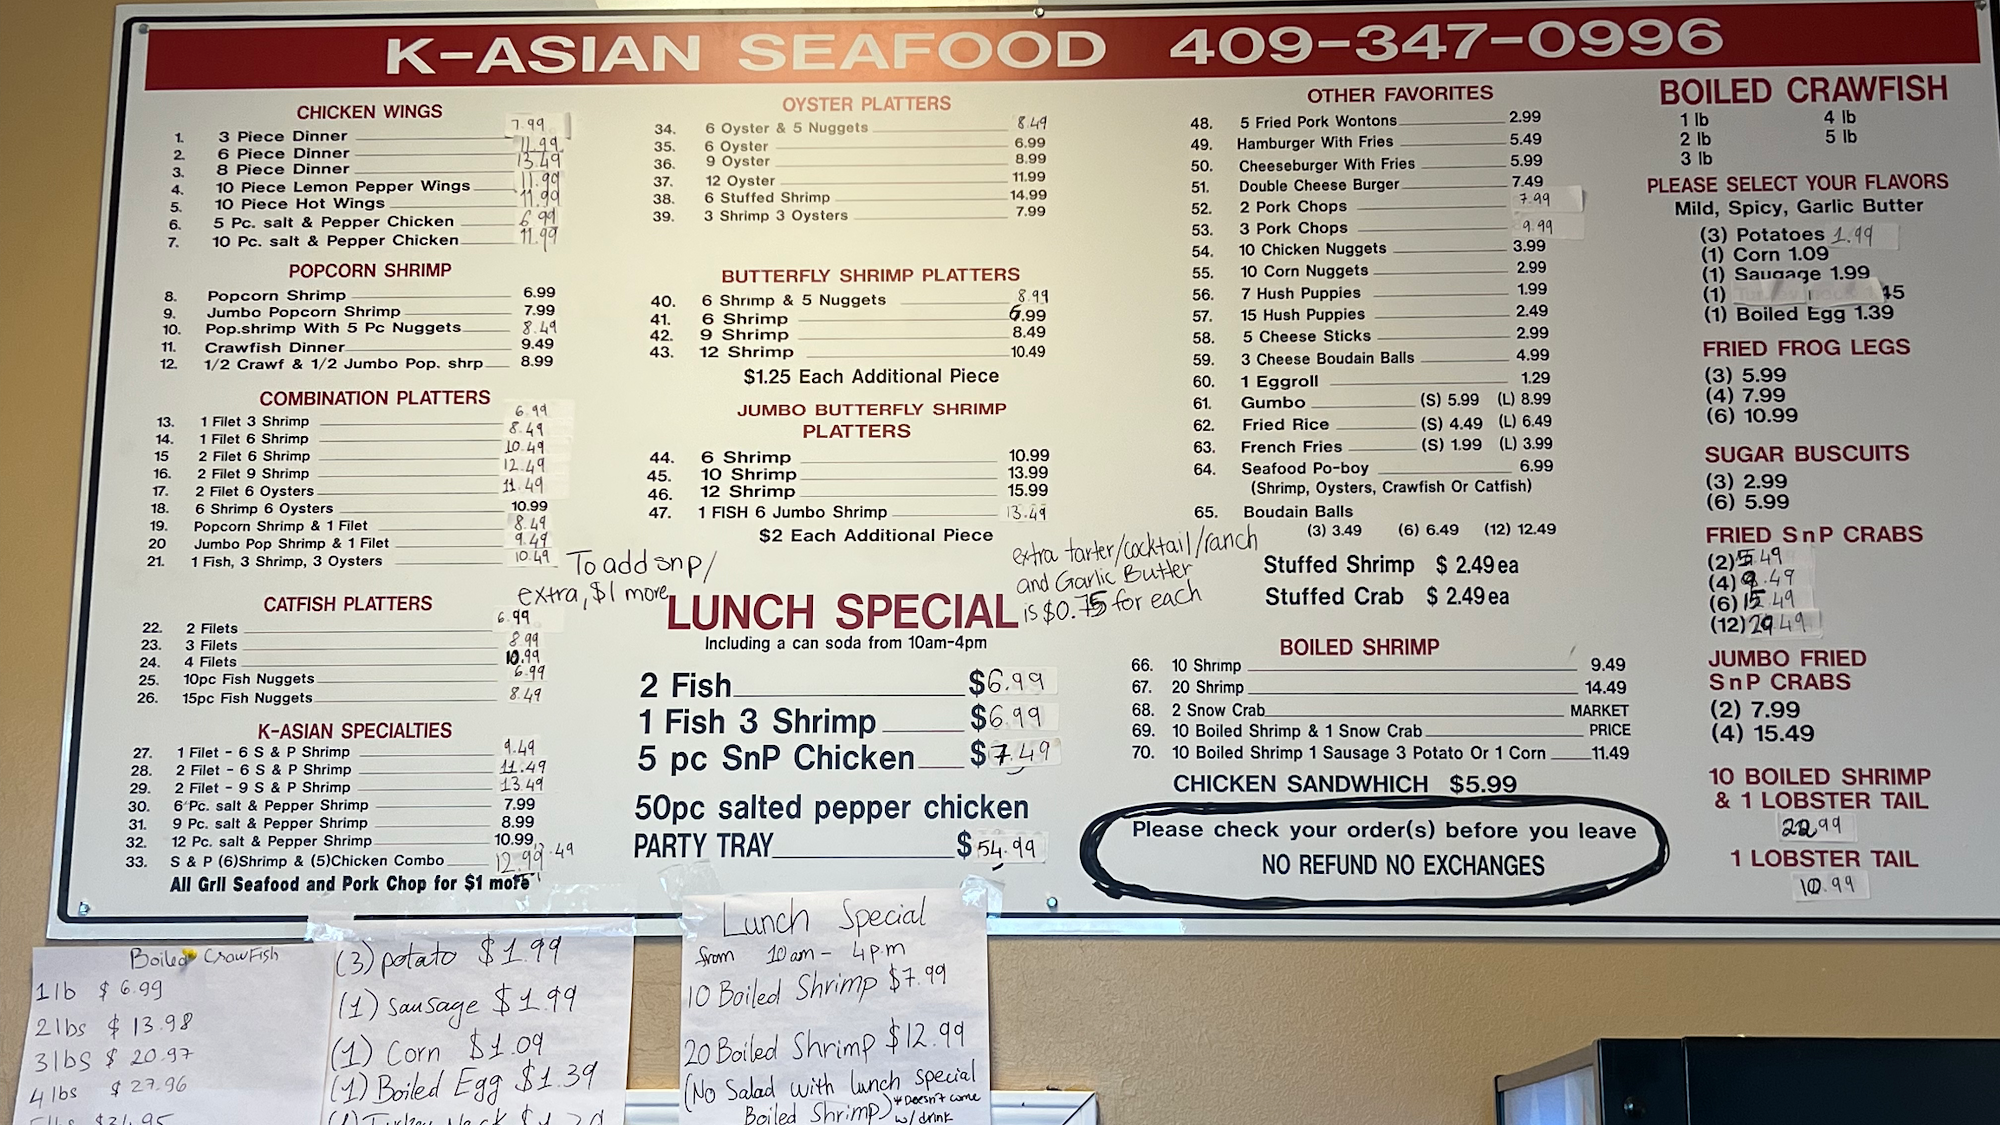 K-ASIAN SEAFOOD 409-347-0996
CHICKEN WINGS
1. 3 Piece Dinner 7.99
2. 6 Piece Dinner 11.99
3. 8 Piece Dinner 13.49
4. 10 Piece Lemon Pepper Wings 11.99
5. 10 Piece Hot Wings 11.99
6. 5 Pc. salt & Pepper Chicken 6.99
7. 10 Pc. salt & Pepper Chicken 11.99
POPCORN SHRIMP
8. Popcorn Shrimp 6.99
9. Jumbo Popcorn Shrimp 7.99
10. Pop.shrimp With 5 Pc Nuggets 8.49
11. Crawfish Dinner 9.49
12. 1/2 Crawf & 1/2 Jumbo Pop. shrp 8.99
COMBINATION PLATTERS
13. 1 Filet 3 Shrimp 6.99
14. 1 Filet 6 Shrimp 8.49
15 2 Filet 6 Shrimp 10.49
16. 2 Filet 9 Shrimp 12.49
17. 2 Filet 6 Oysters 11.49
18. 6 Shrimp 6 Oysters 10.99
19. Popcorn Shrimp & 1 Filet 8.49
20 Jumbo Pop Shrimp & 1 Filet 9.49
21. 1 Fish, 3 Shrimp, 3 Oysters 10.49
To add snp/
extra, $1 more
CATFISH PLATTERS
22. 2 Filets 6.99
23. 3 Filets 8.99
24. 4 Filets 10.99
25. 10pc Fish Nuggets 6.99
26. 15pc Fish Nuggets 8.49
K-ASIAN SPECIALTIES
27. 1 Filet - 6 S & P Shrimp 9.49
28. 2 Filet - 6 S & P Shrimp 11.49
29. 2 Filet - 9 S & P Shrimp 13.49
30. 6 Pc. salt & Pepper Shrimp 7.99
31. 9 Pc. salt & Pepper Shrimp 8.99
32. 12 Pc. salt & Pepper Shrimp 10.99
33. S & P (6)Shrimp & (5)Chicken Combo 12.99
All Grll Seafood and Pork Chop for $1 more
OYSTER PLATTERS
34. 6 Oyster & 5 Nuggets 8.49
35. 6 Oyster 6.99
36. 9 Oyster 8.99
37. 12 Oyster 11.99
38. 6 Stuffed Shrimp 14.99
39. 3 Shrimp 3 Oysters 7.99
BUTTERFLY SHRIMP PLATTERS
40. 6 Shrimp & 5 Nuggets 8.99
41. 6 Shrimp 6.99
42. 9 Shrimp 8.49
43. 12 Shrimp 10.49
$1.25 Each Additional Piece
JUMBO BUTTERFLY SHRIMP
PLATTERS
44. 6 Shrimp 10.99
45. 10 Shrimp 13.99
46. 12 Shrimp 15.99
47. 1 FISH 6 Jumbo Shrimp 13.49
$2 Each Additional Piece
extra tarter/cocktail/ranch
and Garlic Butter
is $0.75 for each
LUNCH SPECIAL
Including a can soda from 10am-4pm
2 Fish $6.99
1 Fish 3 Shrimp $6.99
5 pc SnP Chicken $7.49
50pc salted pepper chicken
PARTY TRAY $54.99
OTHER FAVORITES
48. 5 Fried Pork Wontons 2.99
49. Hamburger With Fries 5.49
50. Cheeseburger With Fries 5.99
51. Double Cheese Burger 7.49
52. 2 Pork Chops 7.99
53. 3 Pork Chops 9.99
54. 10 Chicken Nuggets 3.99
55. 10 Corn Nuggets 2.99
56. 7 Hush Puppies 1.99
57. 15 Hush Puppies 2.49
58. 5 Cheese Sticks 2.99
59. 3 Cheese Boudain Balls 4.99
60. 1 Eggroll 1.29
61. Gumbo (S) 5.99 (L) 8.99
62. Fried Rice (S) 4.49 (L) 6.49
63. French Fries (S) 1.99 (L) 3.99
64. Seafood Po-boy 6.99
(Shrimp, Oysters, Crawfish Or Catfish)
65. Boudain Balls
(3) 3.49 (6) 6.49 (12) 12.49
Stuffed Shrimp $ 2.49 ea
Stuffed Crab $ 2.49 ea
BOILED SHRIMP
66. 10 Shrimp 9.49
67. 20 Shrimp 14.49
68. 2 Snow Crab MARKET
69. 10 Boiled Shrimp & 1 Snow Crab PRICE
70. 10 Boiled Shrimp 1 Sausage 3 Potato Or 1 Corn 11.49
CHICKEN SANDWHICH $5.99
Please check your order(s) before you leave
NO REFUND NO EXCHANGES
BOILED CRAWFISH
1 lb 4 lb
2 lb 5 lb
3 lb
PLEASE SELECT YOUR FLAVORS
Mild, Spicy, Garlic Butter
(3) Potatoes 1.99
(1) Corn 1.09
(1) Saugage 1.99
(1) 45
(1) Boiled Egg 1.39
FRIED FROG LEGS
(3) 5.99
(4) 7.99
(6) 10.99
SUGAR BUSCUITS
(3) 2.99
(6) 5.99
FRIED SnP CRABS
(2) 5.49
(4) 9.49
(6) 15.49
(12) 29.49
JUMBO FRIED
SnP CRABS
(2) 7.99
(4) 15.49
10 BOILED SHRIMP
& 1 LOBSTER TAIL
22.99
1 LOBSTER TAIL
10.99
Boiled CrawFish
1 lb $ 6.99
2 lbs $ 13.98
3 lbs $ 20.97
4 lbs $ 27.96
5 lbs $34.95
(3) potato $1.99
(1) sausage $1.99
(1) Corn $1.09
(1) Boiled Egg $1.39
(1) Turkey Neck
Lunch Special
from 10am - 4pm
10 Boiled Shrimp $7.99
20 Boiled Shrimp $12.99
(No Salad with lunch special
Boiled Shrimp) * Doesn't come
w/ drink